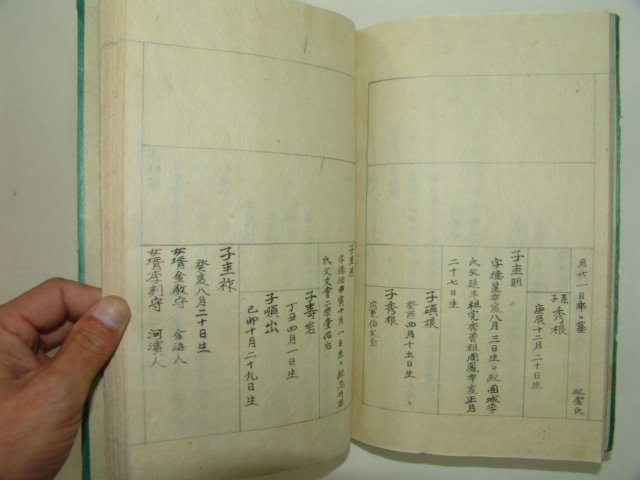 月六一日卒〇墓
子 秀根
庚辰十二月二十日生
配金氏
子圭明
字德星辛亥八月三日生〇配固城李
氏父廷 祖定 曾祖周鳳辛亥正月
二十七日生
子 根
癸酉四月十五日生
子秀根
出系伯父后
子圭
字德佑甲寅十月一日生〇配
氏父文會
子壽岩
丁丑四月一日生
子順出
己卯十月二十九日生
子圭
癸亥八月二十日生
女壻金敬守 金海人
女壻李判守 河濱人